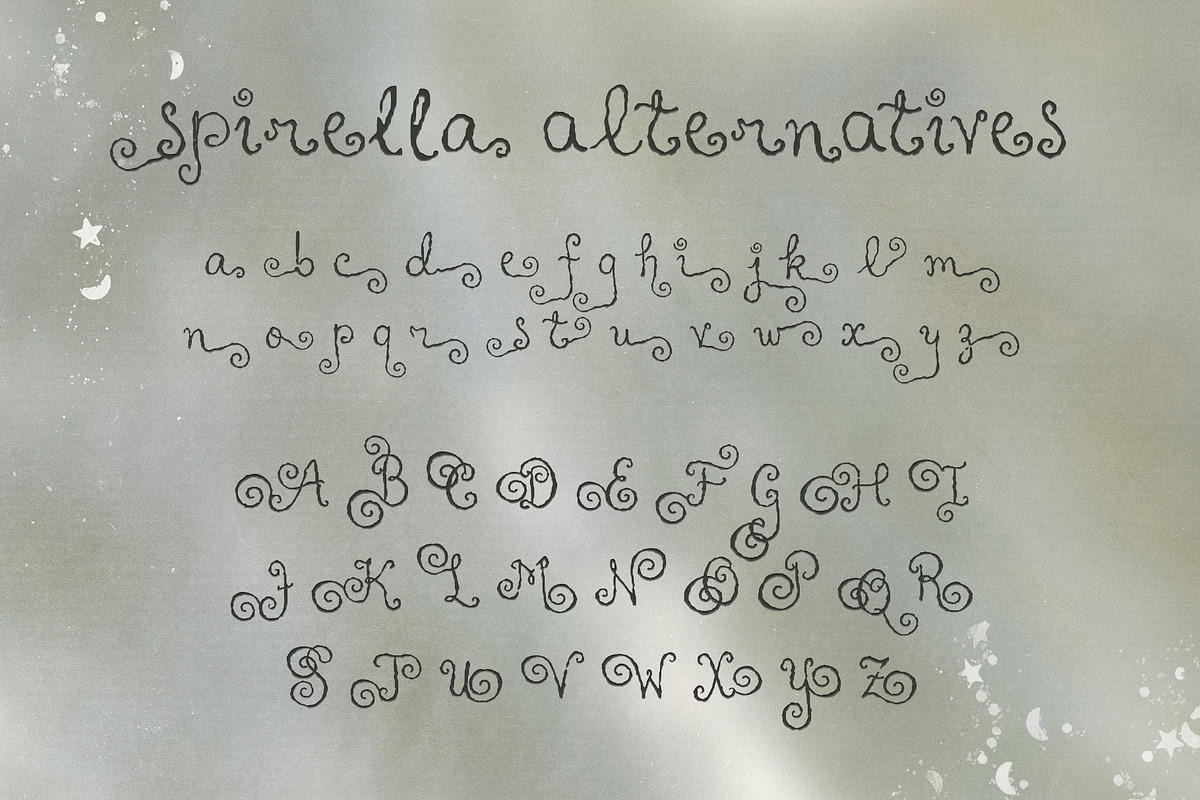 spirella alternatives
a b c d e f g h i j k l m
n o p q r s t u v w x y z
A B C D E F G H I
J K L M N O P Q R
S T U V W X Y Z